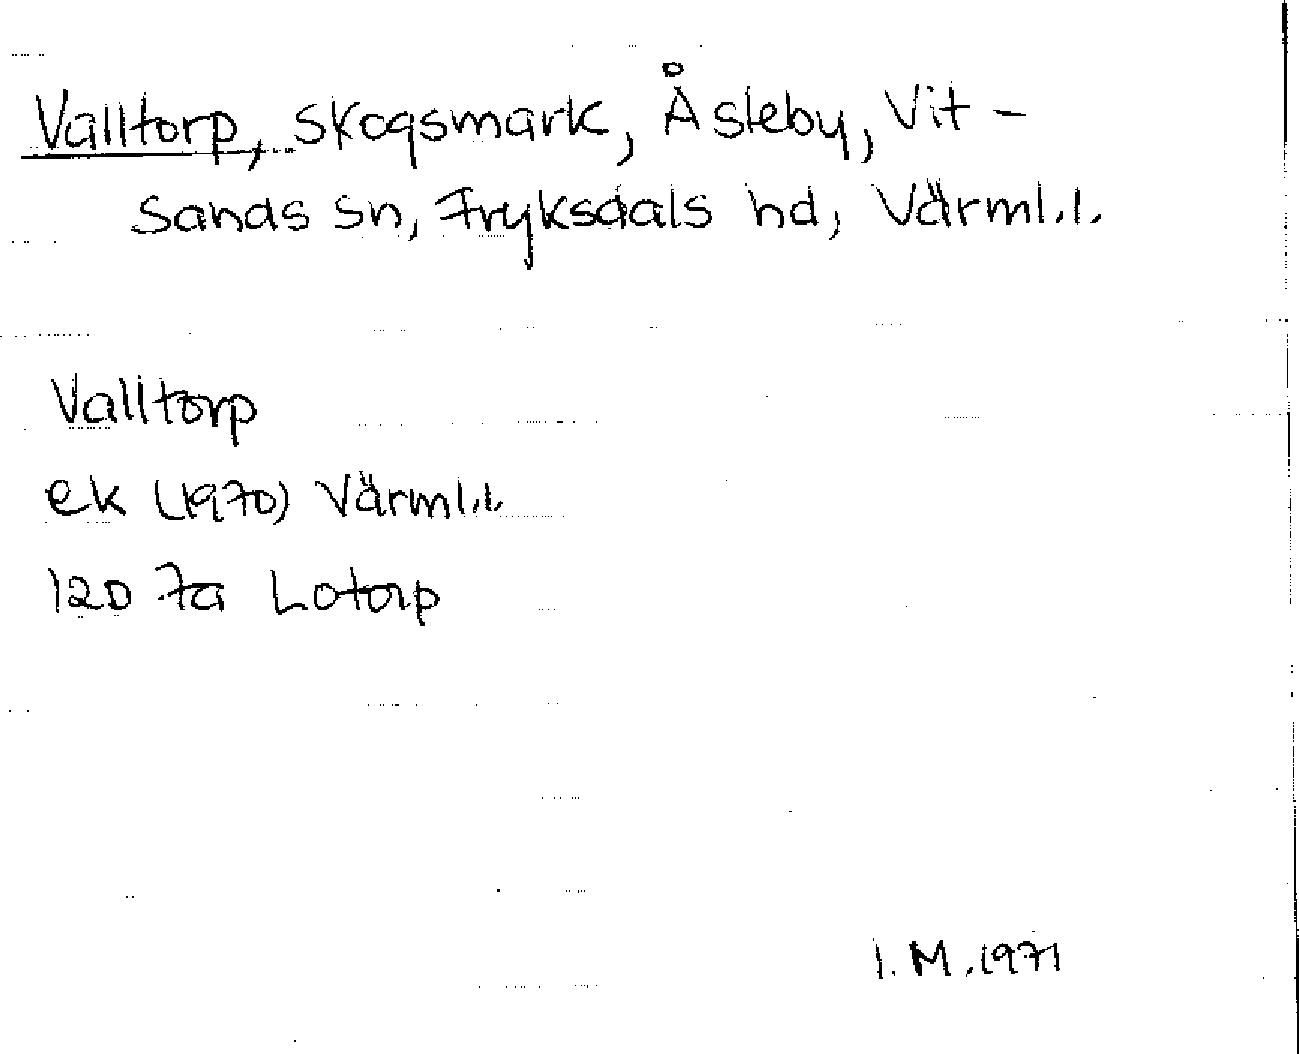 Valltorp, skogsmark, Åsleby, Vit-
sands sn, Fryksdals hd, Värml.l.
Valltorp
ek (1970) Värml.l.
12D 7a Lotorp
I.M. 1971